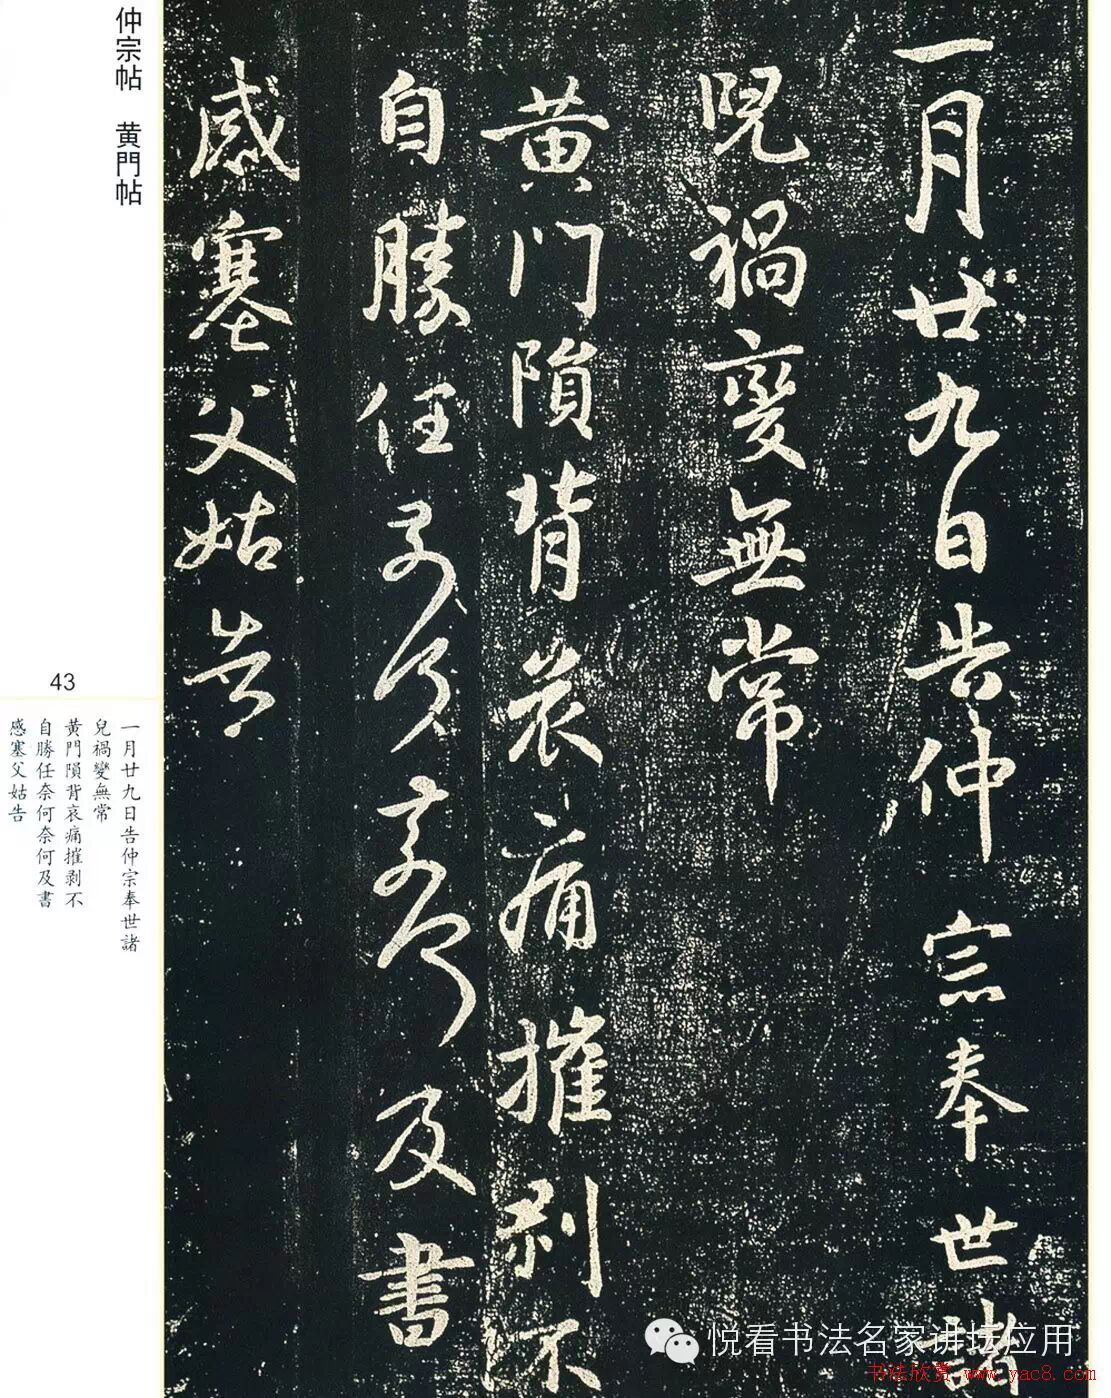 一月廿九日告仲宗奉世諸
兒禍變無常
黄門隕背哀痛摧剥不
自勝任奈何奈何及書
感塞父姑告
仲宗帖 黄門帖
43
一月廿九日告仲宗奉世諸
兒禍變無常
黄門隕背哀痛摧剥不
自勝任奈何奈何及書
感塞父姑告
悦看书法名家讲坛应用
书法欣赏 www.yac8.com